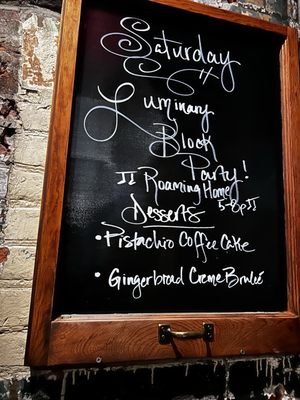 Saturday
Luminary
Block
Party!
II Roaming Home
5-8p II
Desserts
• Pistachio Coffee Cake
• Gingerbread Creme Brulée